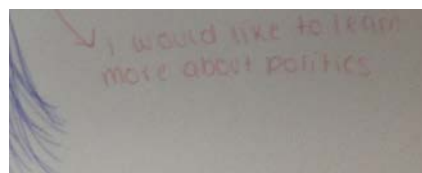 i would like to learn
more about politics